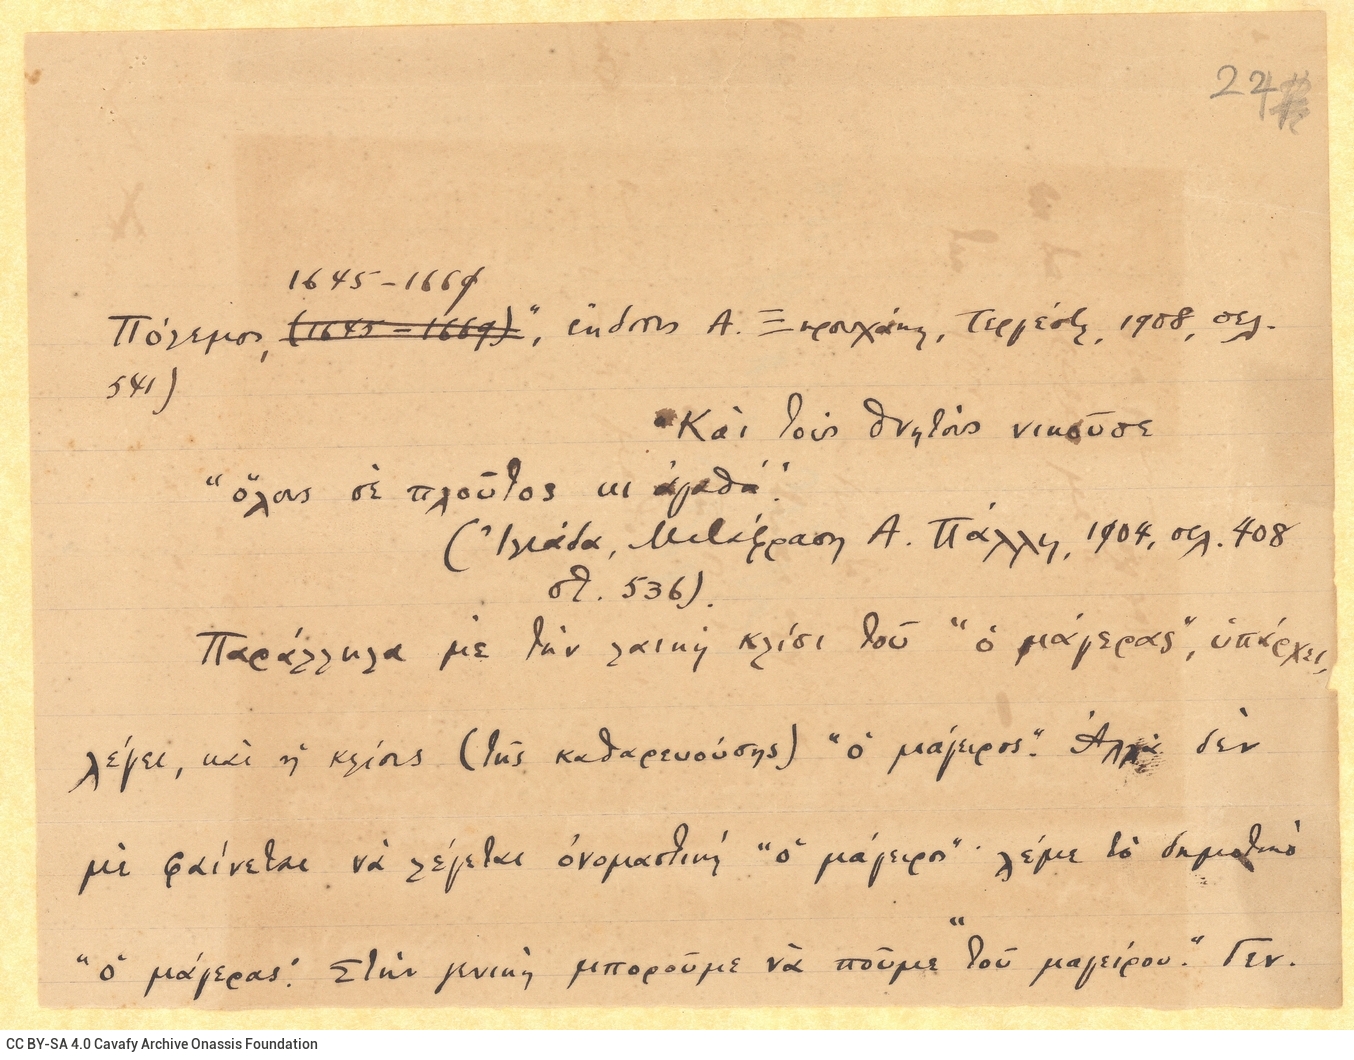 24
1645-1669
Πόλεμος, (1645-1669)", ἔκδοσις Α. Ξηρουχάκη, Τεργέστη, 1908, σελ.
541)
"Καὶ τοὺς θνητοὺς νικοῦσε
"ὅλους σὲ πλοῦτος κι ἀγαθά".
(Ἰλιάδα, Μετάφραση Α. Πάλλη, 1904, σελ. 408
στ. 536).
Παράλληλα μὲ τὴν λαικὴ κλίσι τοῦ "ὁ μάγερας", ὑπάρχει,
λέγει, καὶ ἡ κλίσις (τῆς καθαρευούσης) "ὁ μάγειρος". Ἀλλὰ δὲν
μὲ φαίνεται νὰ λέγεται ὀνομαστικὴ "ὁ μάγειρος"· λέμε τὸ δημοτικὸ
"ὁ μάγερας". Στὴν γενικὴ μποροῦμε νὰ ποῦμε "τοῦ μαγείρου". Γεν.
CC BY-SA 4.0 Cavafy Archive Onassis Foundation